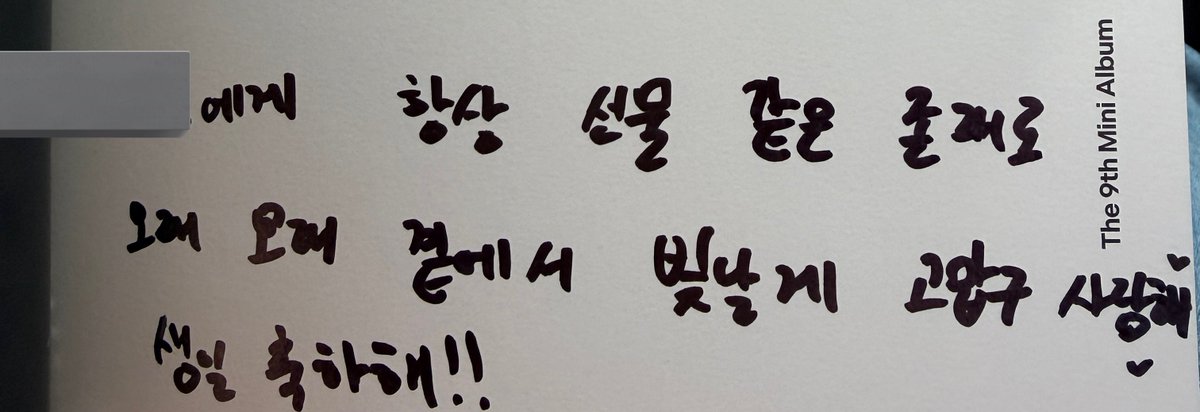 에게 항상 선물 같은 존재로
오래 오래 곁에서 빛날게 고맙구 사랑해
생일 축하해!!
The 9th Mini Album